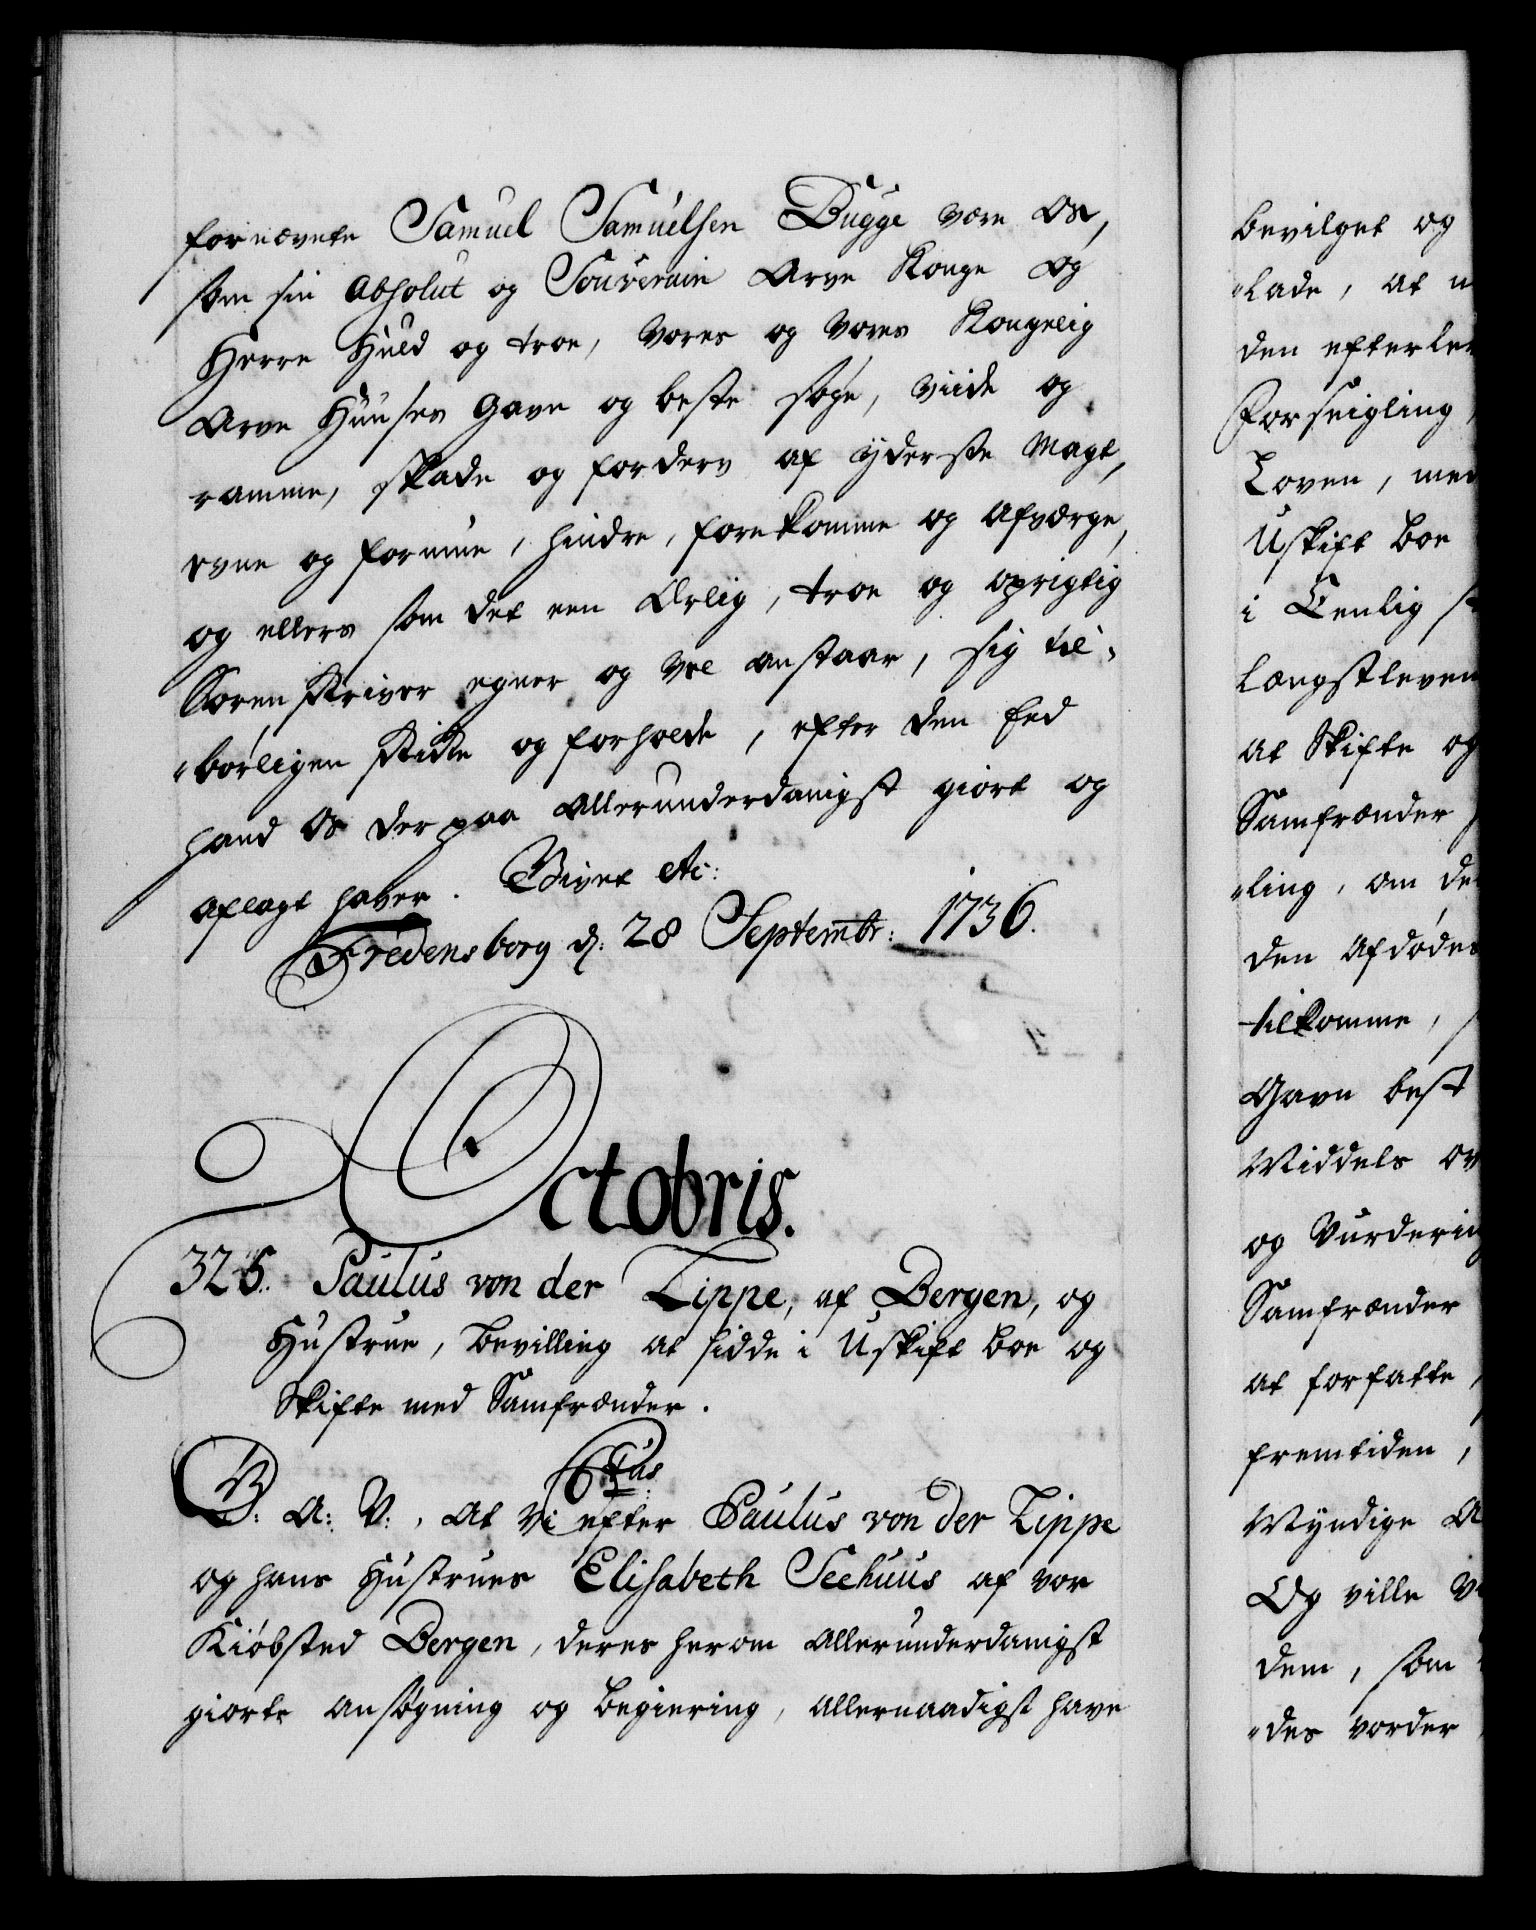 fornævnte Samuel Samuelsen Bugge være Os,
som sin absolut og Souverain Arve Konge og
Herre Huld og troe, Vores og Vores Kongelig
Arve Huuses Gavn og beste søge, viide og
ramme, skade og forderv af yderste Magt,
evne og formue, hindre, forekomme og afværge,
og ellers som det een Ærlig, troe og oprigtig
Sorenskriver egner og vel anstaar, sig til-
"børligen skikke og forholde, efter den Eed
hand Os derpaa allerunderdanigst giort og
aflagt haver. Givet etc:
Fredensborg d: 28 Septembr: 1736.
Octobris.
326. Paulus von der Lippe, af Bergen, og
Hustrue, bevilling at sidde i Uskift boe og
Skifte med Samfrænder.
6tus
G: A: V:, at Vi efter Paulus von der Lippe
og hans Hustrues Elisabeth Seehuus af vor
Kiøbsted Bergen, deres herom allerunderdanigst
giorte ansøgning og begiering, allernaadigst have
bevilget og
"lade, at
den efterle
Forseigling,
Loven, men
Uskift boe
i Eenlig
længstleven
at Skifte og
Samfrænder
"ling, om de
den afdødes
tilkomme,
Gavn best
Middels
og Vurdering
Samfrænder
at forfatte,
fremtiden,
Myndige
Og ville
dem, som
"des vorder